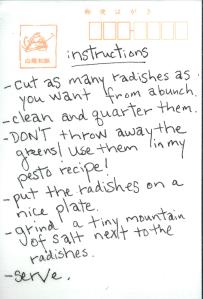 郵便はがき
instructions
-cut as many radishes as
you want from a bunch.
-clean and quarter them.
-DON'T throw away the
greens! Use them in my
pesto recipe!
-put the radishes on a
nice plate.
-grind a tiny mountain
of salt next to the
radishes.
-serve.